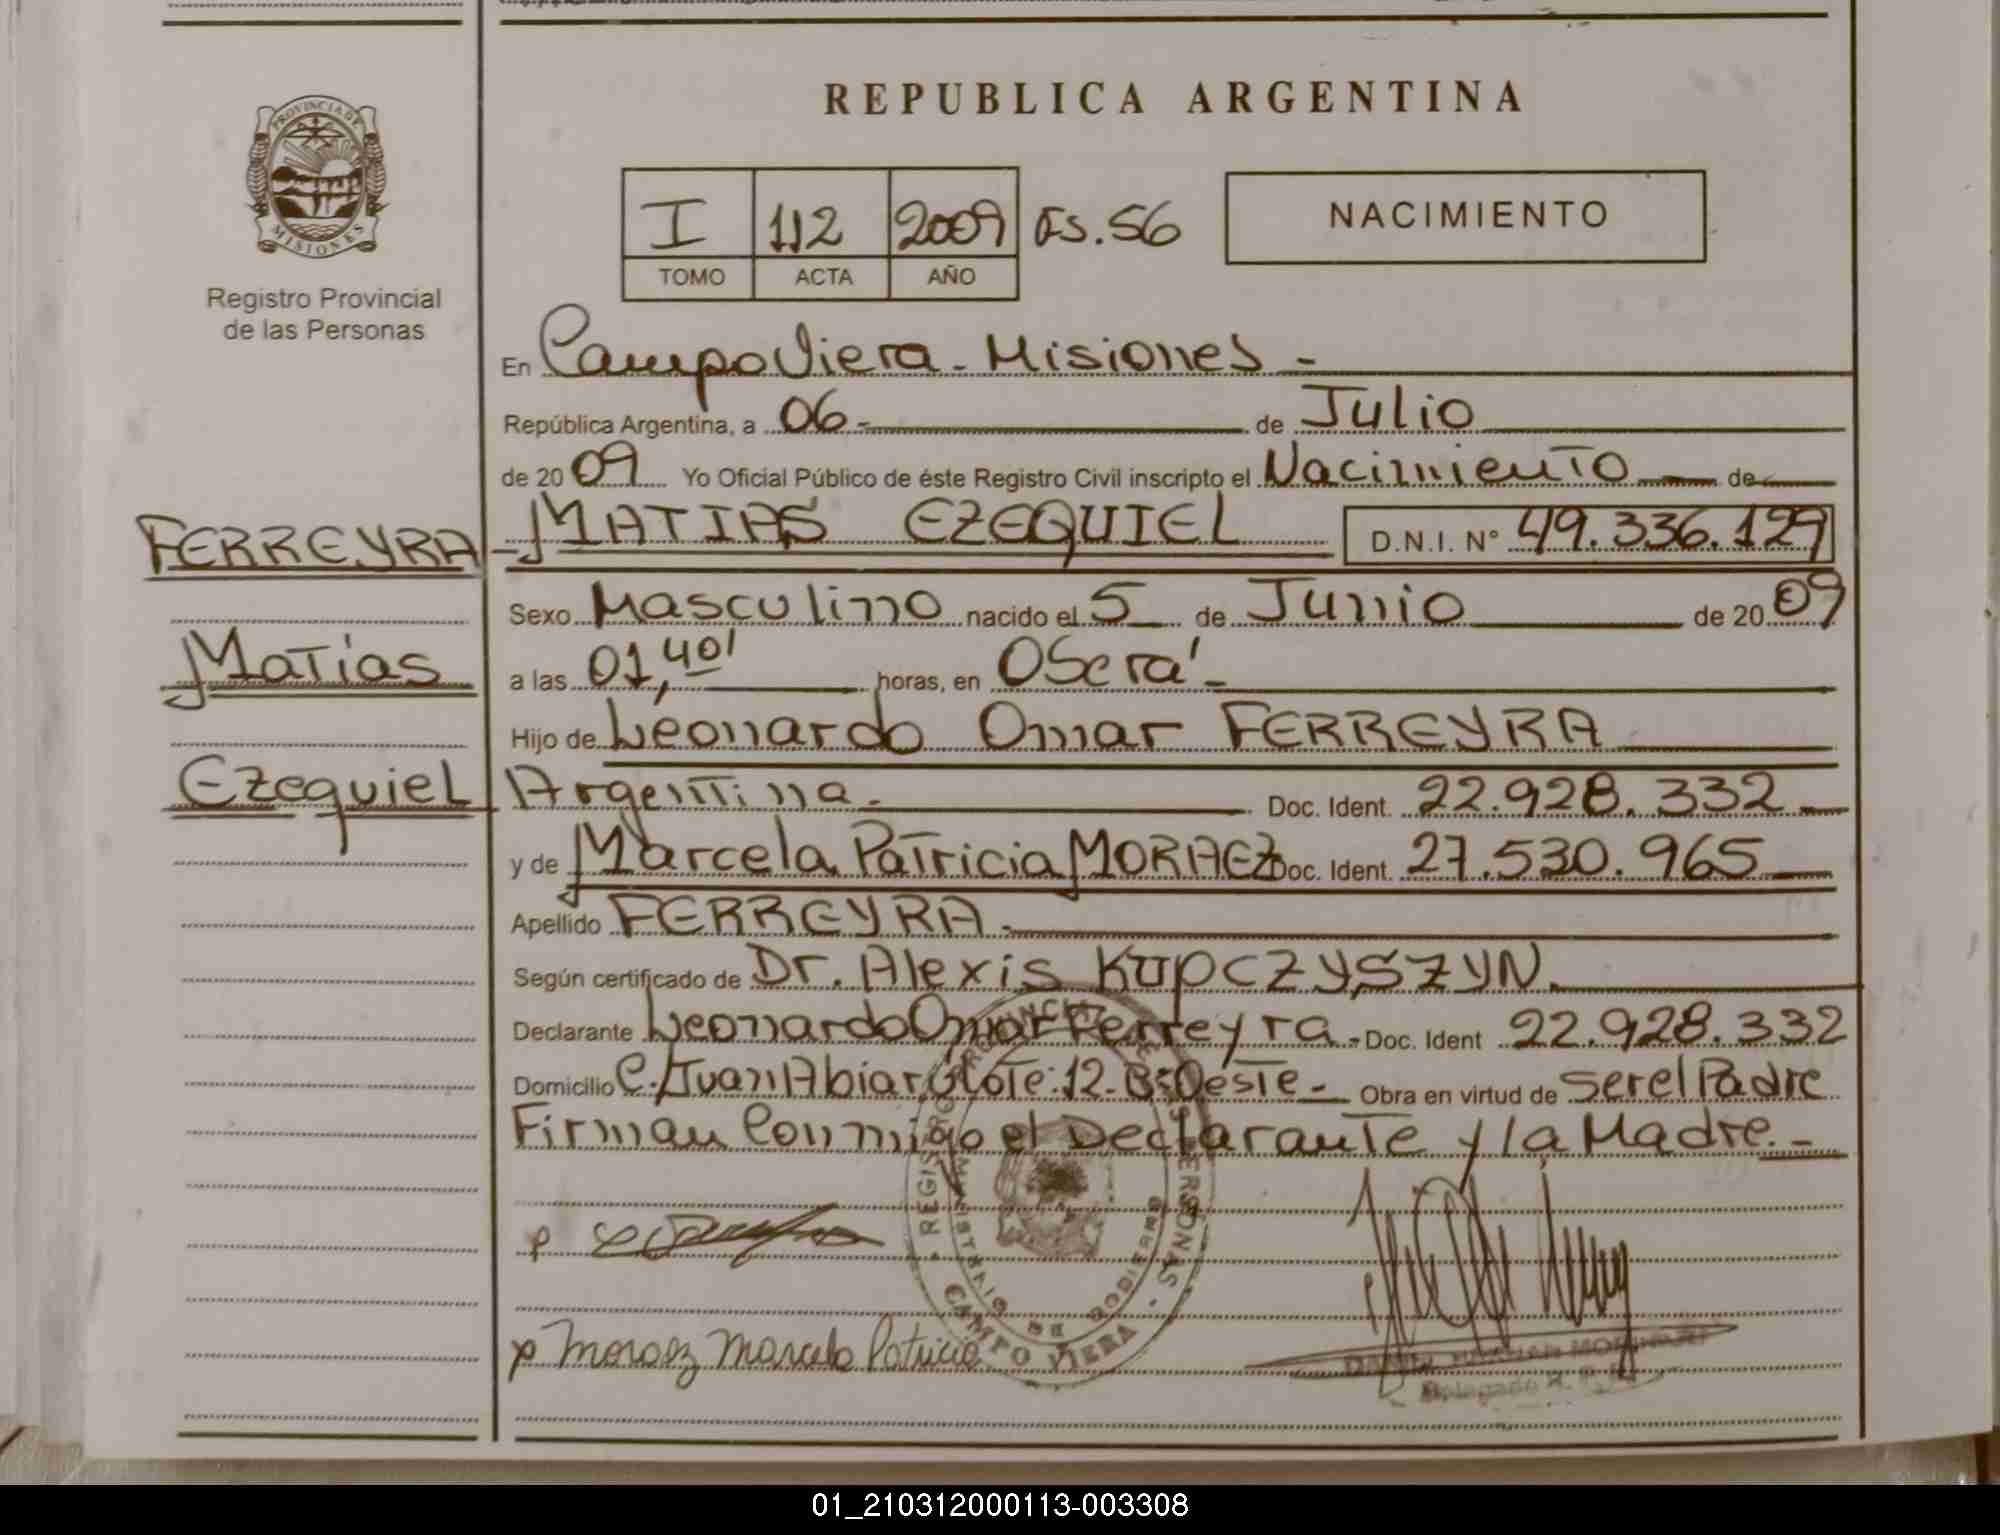 REPUBLICA ARGENTINA
PROVINCIA DE
MISIONES
Registro Provincial
de las Personas
I 112 2009 Fs. 56
TOMO ACTA AÑO
NACIMIENTO
En Campo Viera - Misiones -
República Argentina, a 06 - de Julio
de 2009 Yo Oficial Público de éste Registro Civil inscripto el Nacimiento de
FERREYRA - MATIAS EZEQUIEL D.N.I. N° 49.336.129
Sexo Masculino nacido el 5 de Junio de 2009
Matías
a las 01,40' horas, en Oberá -
Hijo de Leonardo Omar FERREYRA
Ezequiel
Argentina - Doc. Ident. 22.928.332
y de Marcela Patricia MORAEZ Doc. Ident. 27.530.965
Apellido FERREYRA -
Según certificado de Dr. Alexis KUPCZYSZYN.
Declarante Leonardo Omar Ferreyra - Doc. Ident 22.928.332
Domicilio C. Juan Abiar Lote: 12 - B: Oeste - Obra en virtud de ser el Padre
Firman Conmigo el Declarante y la Madre. -
REGISTRO PROVINCIAL DE LAS PERSONAS
MINISTERIO DE GOBIERNO
CAMPO VIERA
p
p Moraez Marcela Patricia
Delegado R. P.
01_210312000113-003308